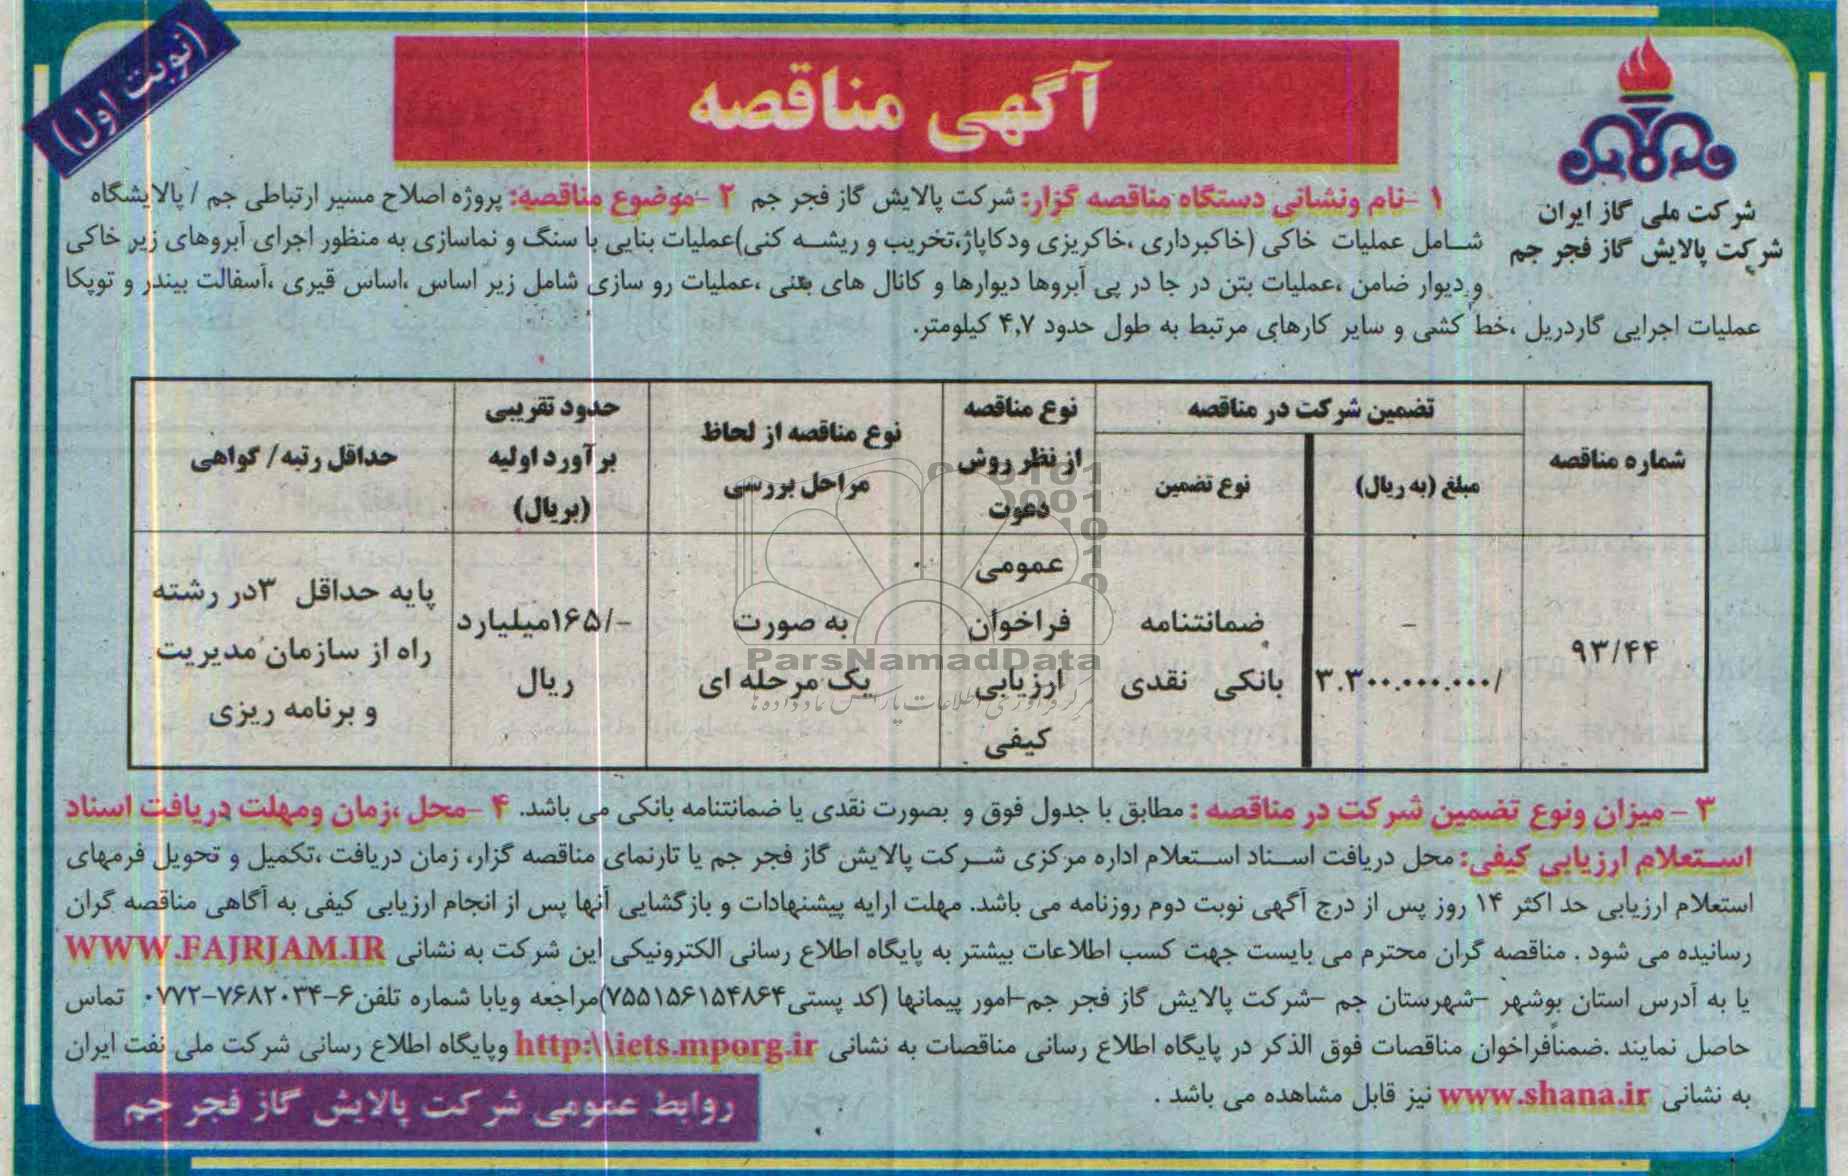 (نوبت اول)
آگهی مناقصه
شرکت ملی گاز ایران
شرکت پالایش گاز فجر جم
۱ -نام ونشانی دستگاه مناقصه گزار: شرکت پالایش گاز فجر جم ۲ -موضوع مناقصه: پروژه اصلاح مسیر ارتباطی جم / پالایشگاه
شامل عملیات خاکی (خاکبرداری ،خاکریزی ودکاپاژ،تخریب و ریشه کنی)عملیات بنایی با سنگ و نماسازی به منظور اجرای آبروهای زیر خاکی
و دیوار ضامن ،عملیات بتن در جا در پی آبروها دیوارها و کانال های بتنی ،عملیات رو سازی شامل زیر اساس ،اساس قیری ،آسفالت بیندر و توپکا
عملیات اجرایی گاردریل ،خط کشی و سایر کارهای مرتبط به طول حدود ۴,۷ کیلومتر.
شماره مناقصه
تضمین شرکت در مناقصه
مبلغ (به ریال)
نوع تضمین
نوع مناقصه
از نظر روش
دعوت
نوع مناقصه از لحاظ
مراحل بررسی
حدود تقریبی
برآورد اولیه
(بریال)
حداقل رتبه/ گواهی
۹۳/۴۴
-
۳.۳۰۰.۰۰۰.۰۰۰/
ضمانتنامه
بانکی نقدی
عمومی
فراخوان
ارزیابی
کیفی
به صورت
یک مرحله ای
-/۱۶۵میلیارد
ریال
پایه حداقل ۳در رشته
راه از سازمان مدیریت
و برنامه ریزی
ParsNamadData
مرکز فرآوری اطلاعات پارس نماد داده ها
۳ - میزان ونوع تضمین شرکت در مناقصه : مطابق با جدول فوق و بصورت نقدی یا ضمانتنامه بانکی می باشد. ۴ -محل ،زمان ومهلت دریافت اسناد
استعلام ارزیابی کیفی: محل دریافت اسناد استعلام اداره مرکزی شرکت پالایش گاز فجر جم یا تارنمای مناقصه گزار، زمان دریافت ،تکمیل و تحویل فرمهای
استعلام ارزیابی حد اکثر ۱۴ روز پس از درج آگهی نوبت دوم روزنامه می باشد. مهلت ارایه پیشنهادات و بازگشایی آنها پس از انجام ارزیابی کیفی به آگاهی مناقصه گران
رسانیده می شود . مناقصه گران محترم می بایست جهت کسب اطلاعات بیشتر به پایگاه اطلاع رسانی الکترونیکی این شرکت به نشانی WWW.FAJRJAM.IR
یا به آدرس استان بوشهر -شهرستان جم -شرکت پالایش گاز فجر جم-امور پیمانها (کد پستی۷۵۵۱۵۶۱۵۴۸۶۴)مراجعه ویابا شماره تلفن۶-۷۶۸۲۰۳۴-۰۷۷۲ تماس
حاصل نمایند .ضمنافراخوان مناقصات فوق الذکر در پایگاه اطلاع رسانی مناقصات به نشانی http:\\iets.mporg.ir وپایگاه اطلاع رسانی شرکت ملی نفت ایران
به نشانی www.shana.ir نیز قابل مشاهده می باشد .
روابط عمومی شرکت پالایش گاز فجر جم